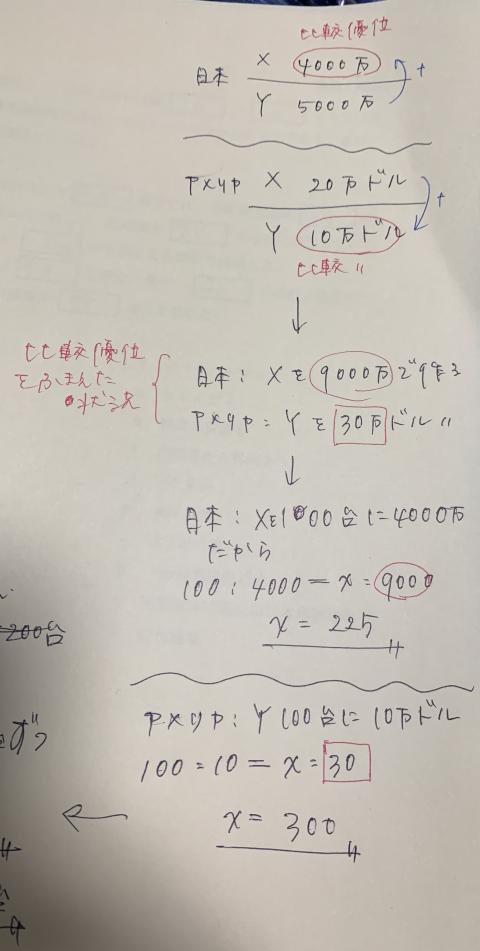 比較優位
日本 X 4000万
Y 5000万 +
アメリカ X 20万ドル
Y 10万ドル +
比較〃
↓
比較優位
をふまえた
状況
日本：Xを9000万で作る
アメリカ：Yを30万ドル〃
↓
日本：Xを100台に4000万
だから
100：4000＝x：9000
x＝225
アメリカ：Y100台に10万ドル
100：10＝x：30
x＝300
200台
ずつ
←
台